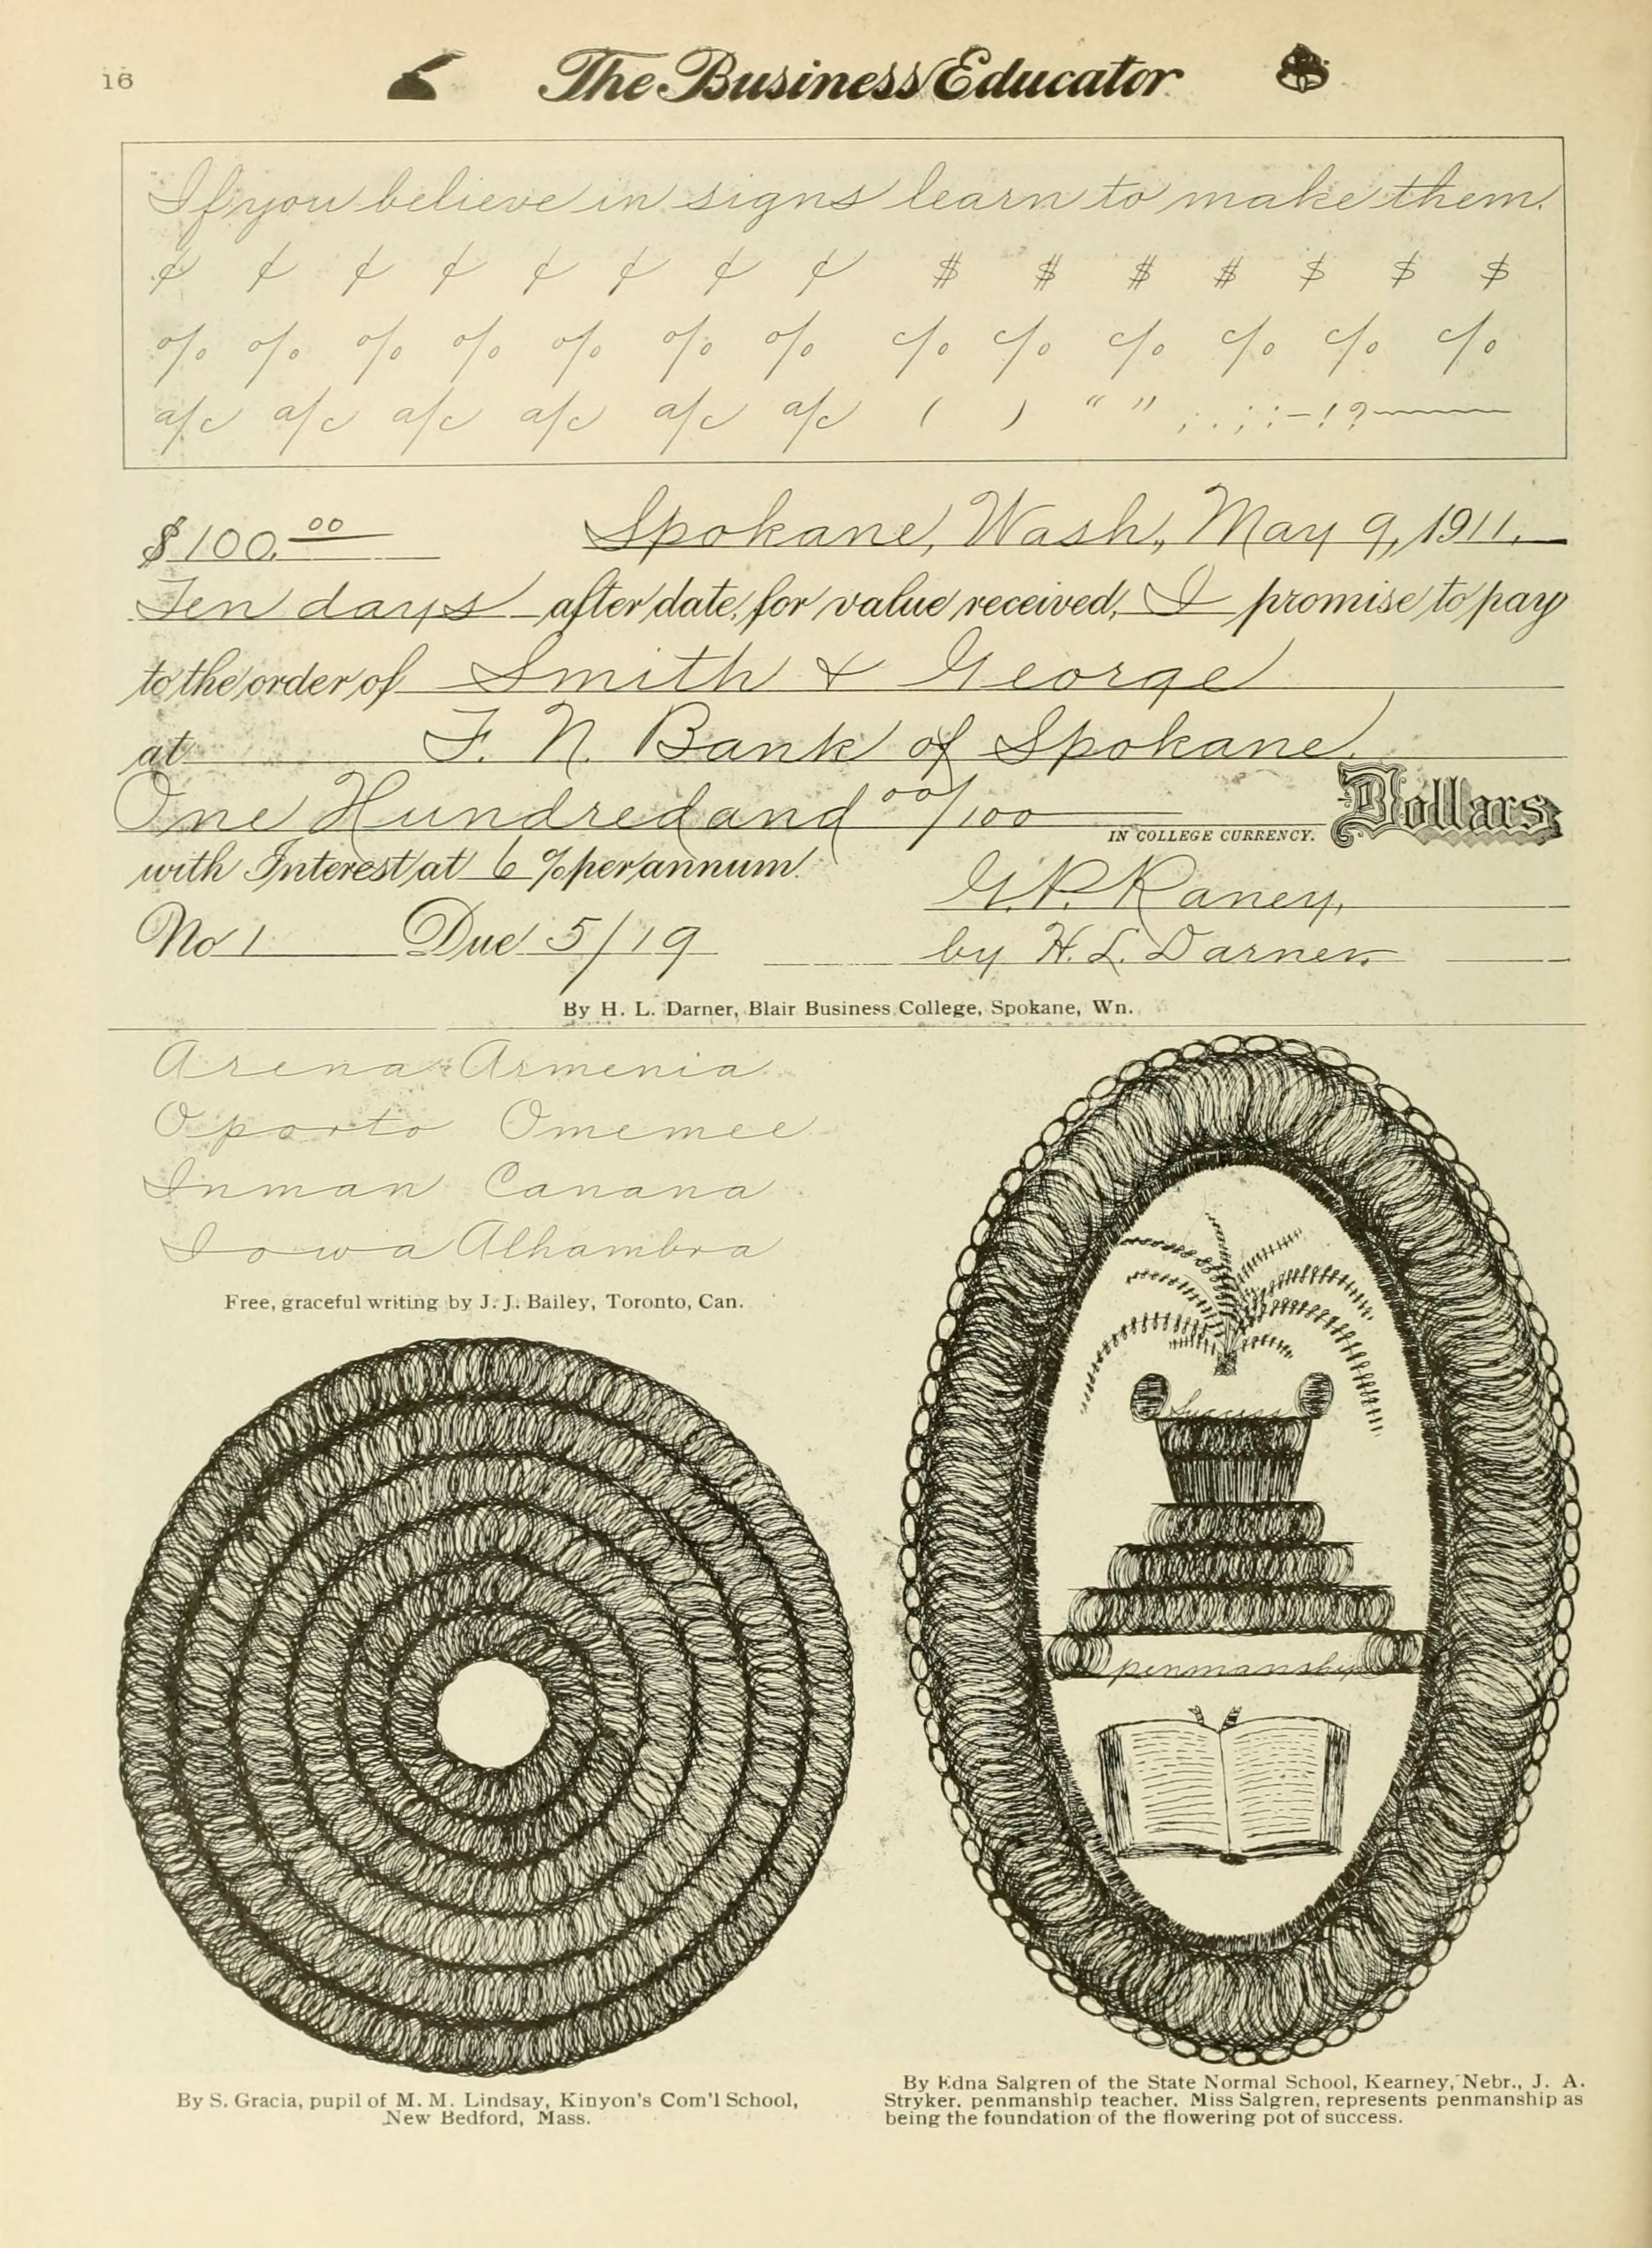 16
The Business Educator
If you believe in signs learn to make them.
¢ ¢ ¢ ¢ ¢ ¢ ¢ ¢ $ $ $ $ $ $ $
% % % % % % % c/o c/o c/o c/o c/o c/o
a/c a/c a/c a/c a/c a/c ( ) “ ” , . ; : - ! ?
$100.00 Spokane, Wash., May 9, 1911.
Ten days after date, for value received, I promise to pay
to the order of Smith & George
at F. N. Bank of Spokane.
One Hundred and 00/100 Dollars
IN COLLEGE CURRENCY.
with Interest at 6 % per annum.
G. P. Raney,
No 1 Due 5/19
by H. L. Darner.
By H. L. Darner, Blair Business College, Spokane, Wn.
Arena Armenia
Oporto Omemee
Inman Canana
Iowa Alhambra
Free, graceful writing by J. J. Bailey, Toronto, Can.
Success
penmanship
By S. Gracia, pupil of M. M. Lindsay, Kinyon's Com'l School,
New Bedford, Mass.
By Edna Salgren of the State Normal School, Kearney, Nebr., J. A.
Stryker, penmanship teacher, Miss Salgren, represents penmanship as
being the foundation of the flowering pot of success.